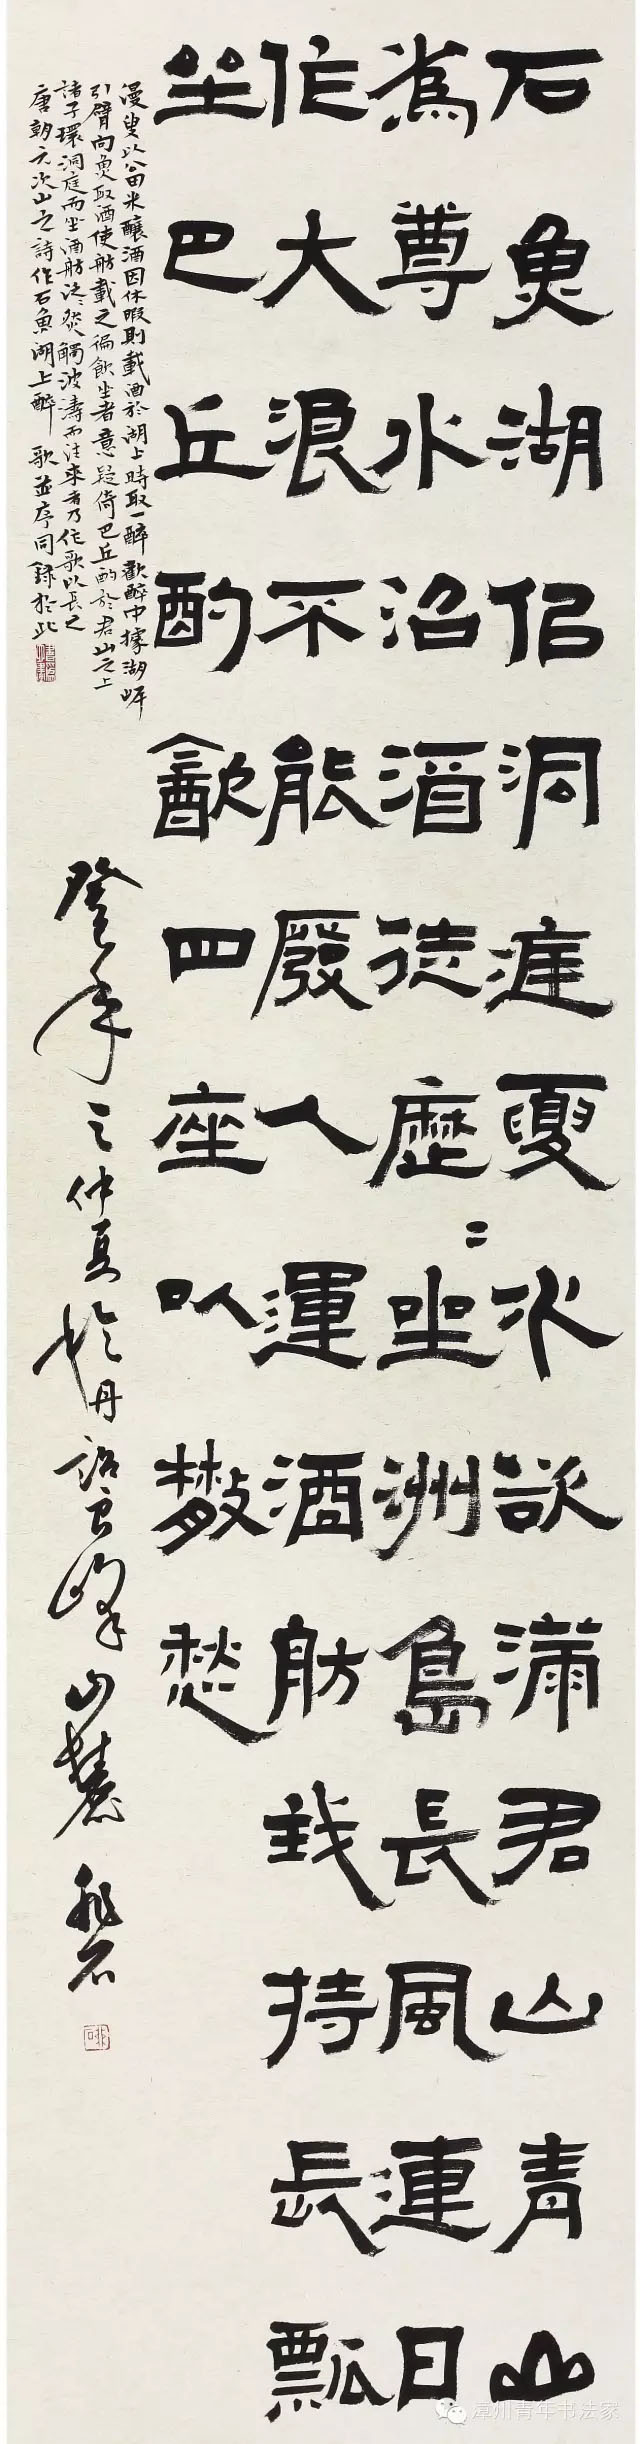 石魚湖佀洞庭夏水欲滿君山青山
為尊水沼酒徒歷〻坐洲島長風連日
作大浪不能廢人運酒舫我持長瓢
坐巴丘酌㱃四座以散愁
漫叟以公田米釀酒因休暇則載酒於湖上時取一醉歡醉中據湖岸
引臂向魚取酒使舫載之徧飲坐者意疑倚巴丘酌於君山之上
諸子環洞庭而坐酒舫泛〻然觸波濤而往來者乃作歌以長之
唐朝元次山之詩作石魚湖上醉歌並序同錄於此
年之仲夏於丹詔良峰山麓 非石
漳州青年书法家